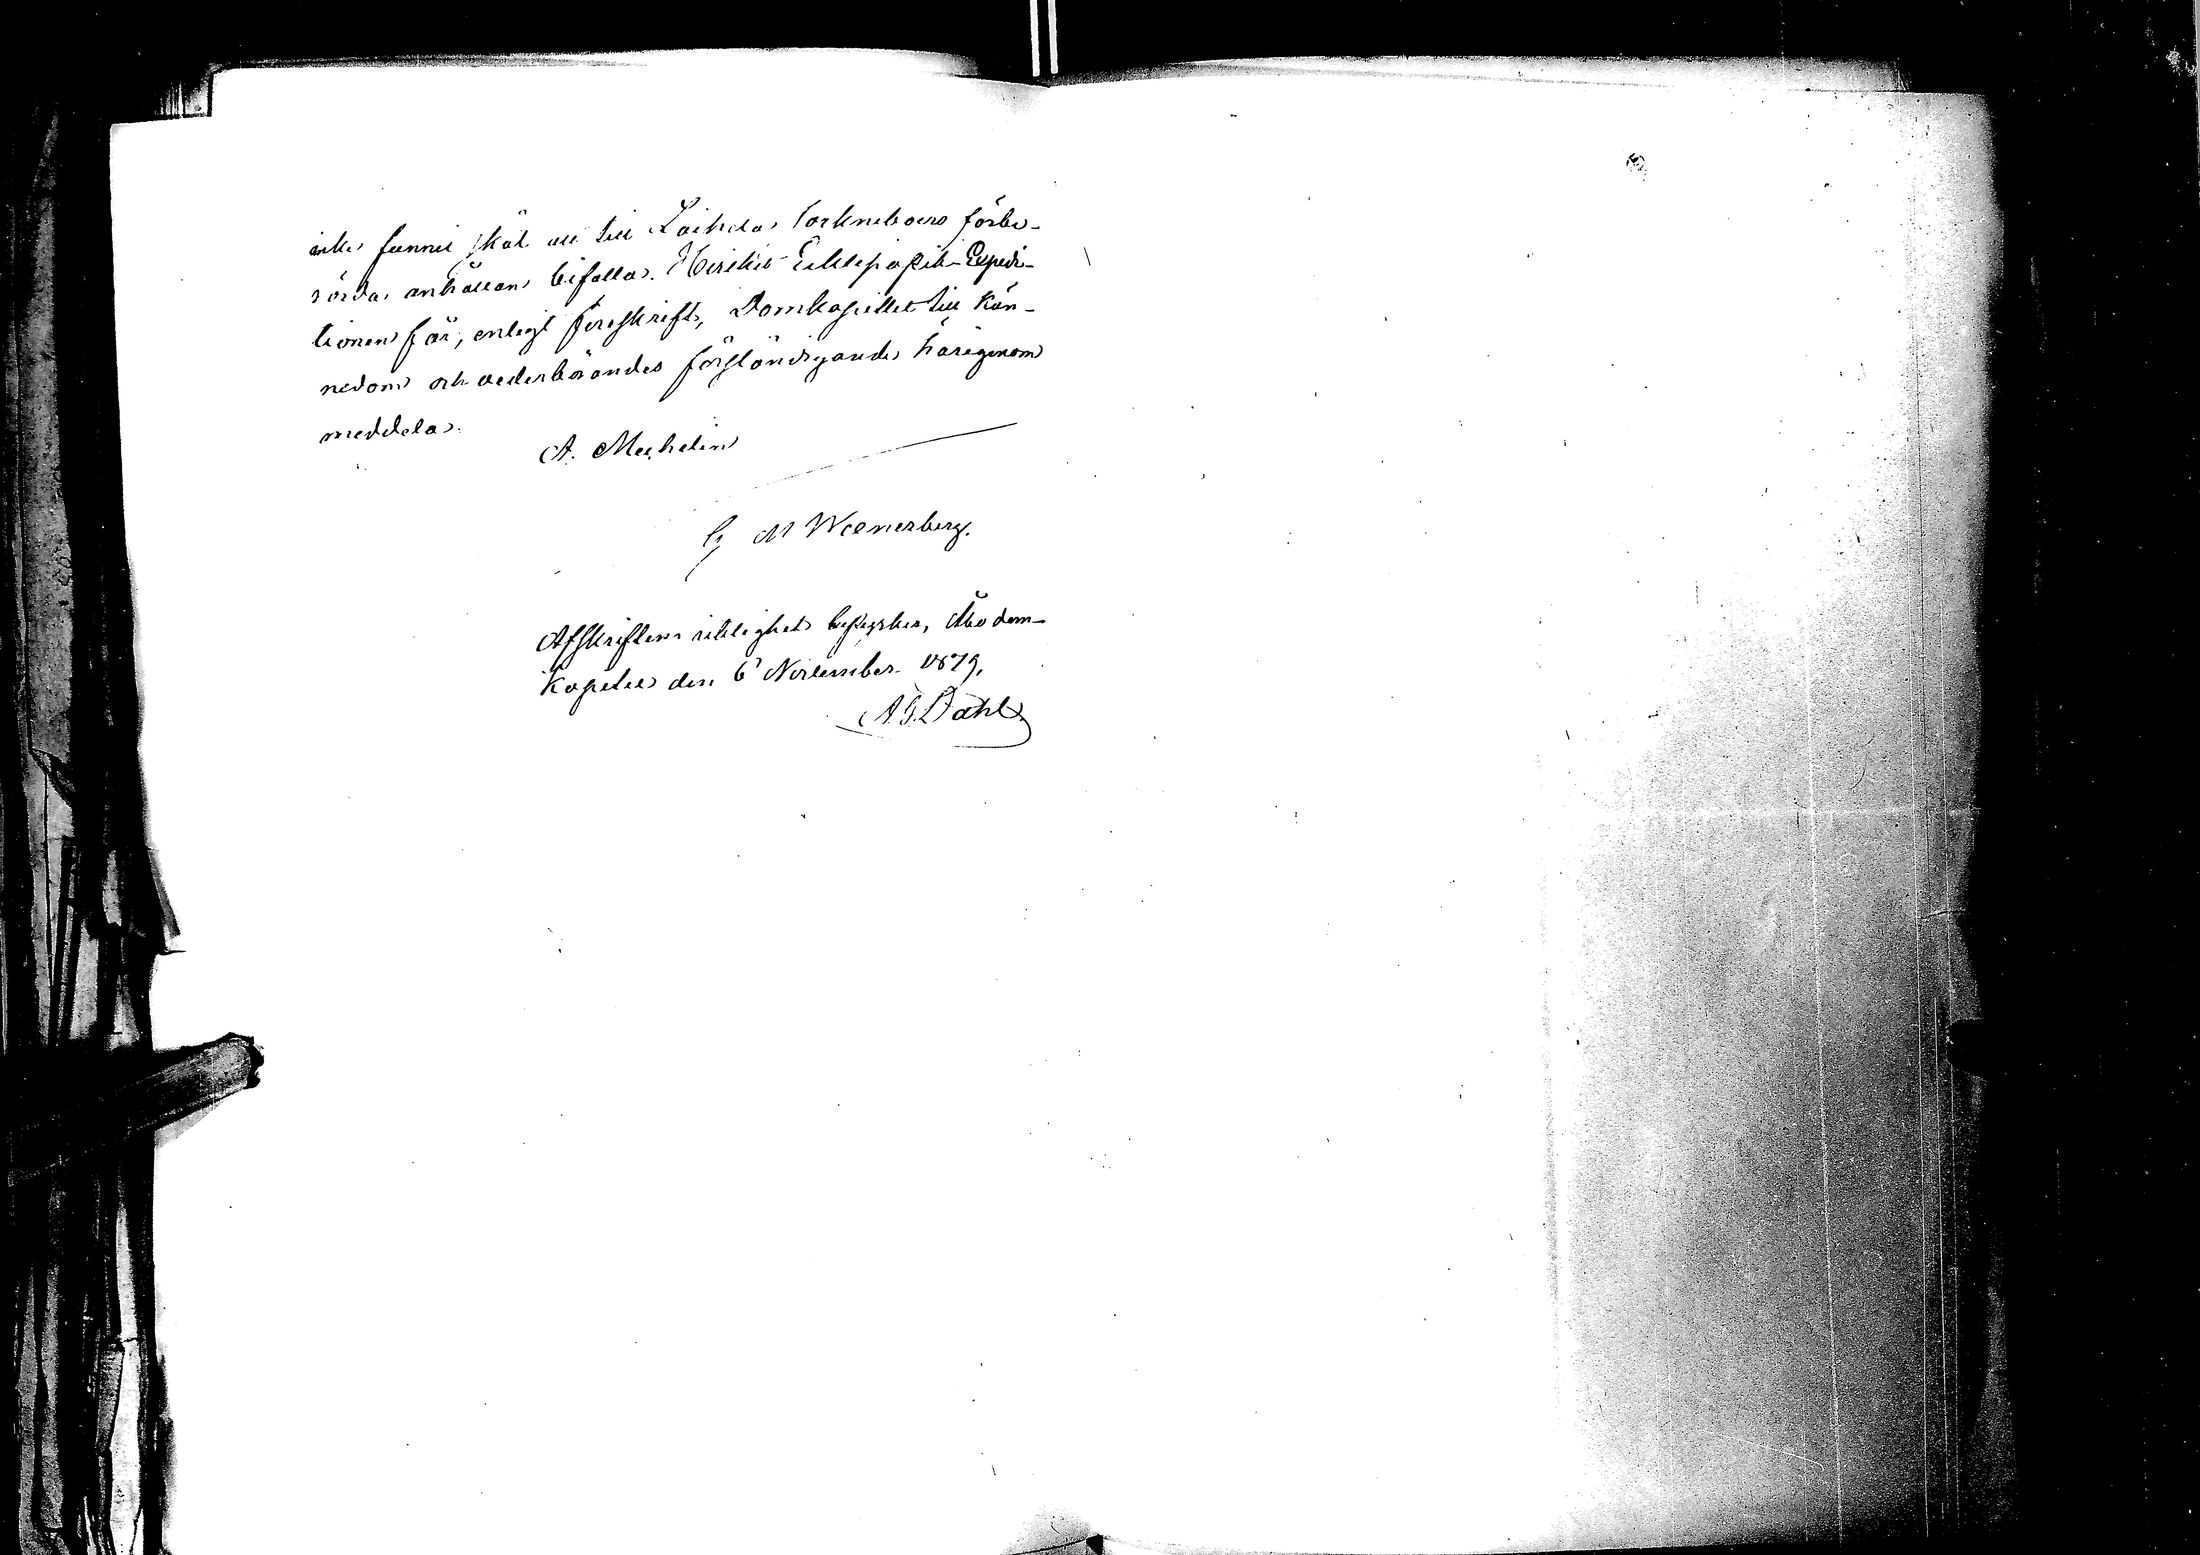 icke funnit skäl att till Laihela sockneboers förbe-
rörda anhållan bifalla. Hvilket Ecklesiastik-Expedi-
tionen får, enligt föreskrift, Domkapitlet till kän-
nedom och vederbörandes förständigande härigenom
meddela.
A. Mechelin
G M Wænerberg.
Afskriftens riktighet betygar, Åbo dom-
kapitel den 6 November 1879.
A. G. Dahl